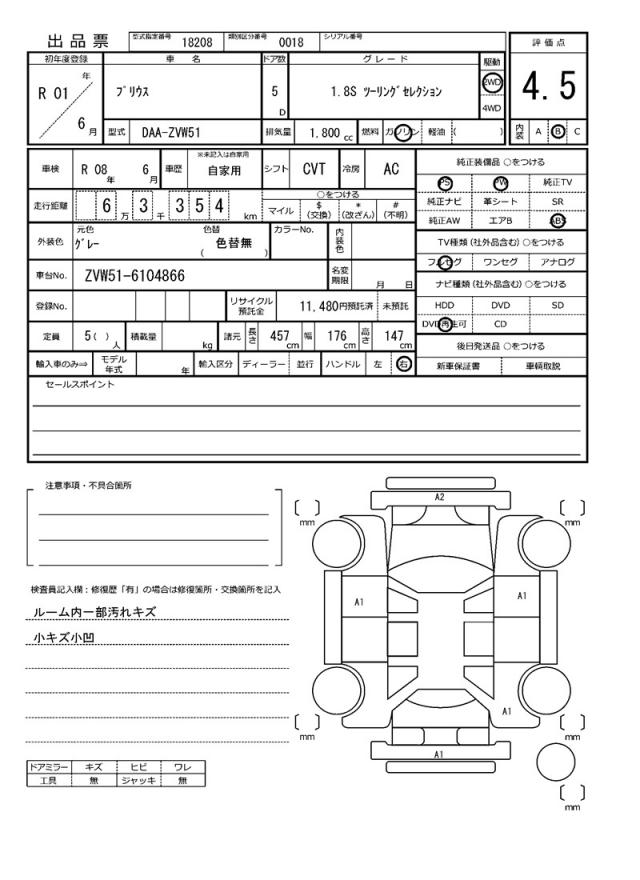 出品票 型式指定番号 18208 類別区分番号 0018 シリアル番号
評価点
4.5
内装 A B C
初年度登録 車名 ドア数 グレード 駆動
R 01 年 6 月 プリウス 5 D 1.8S ツーリングセレクション 2WD 4WD
型式 DAA-ZVW51 排気量 1.800 cc 燃料 ガソリン 軽油 ( )
車検 R 08 年 6 月 車歴 ※未記入は自家用 自家用 シフト CVT 冷房 AC
走行距離 6 万 3 千 354 km ○をつける マイル $(交換) *(改ざん) #(不明)
外装色 元色 グレー 色替 ( 色替無 ) カラーNo. 内装色
車台No. ZVW51-6104866 名変期限 月 日
登録No. リサイクル預託金 11,480円預託済 未預託
定員 5( )人 積載量 kg 諸元 長さ 457cm 幅 176cm 高さ 147cm
輸入車のみ⇒ モデル年式 年 輸入区分 ディーラー 並行 ハンドル 左 右
純正装備品 ○をつける
PS PW 純正TV
純正ナビ 革シート SR
純正AW エアB ABS
TV種類(社外品含む)○をつける
フルセグ ワンセグ アナログ
ナビ種類(社外品含む)○をつける
HDD DVD SD
DVD再生可 CD
後日発送品 ○をつける
新車保証書 車輌取説
セールスポイント
注意事項・不具合箇所
検査員記入欄：修復歴「有」の場合は修復箇所・交換箇所を記入
ルーム内一部汚れキズ
小キズ小凹
ドアミラー キズ ヒビ ワレ
工具 無 ジャッキ 無
A2
mm mm
A1 A1
A1
mm mm
A1
mm